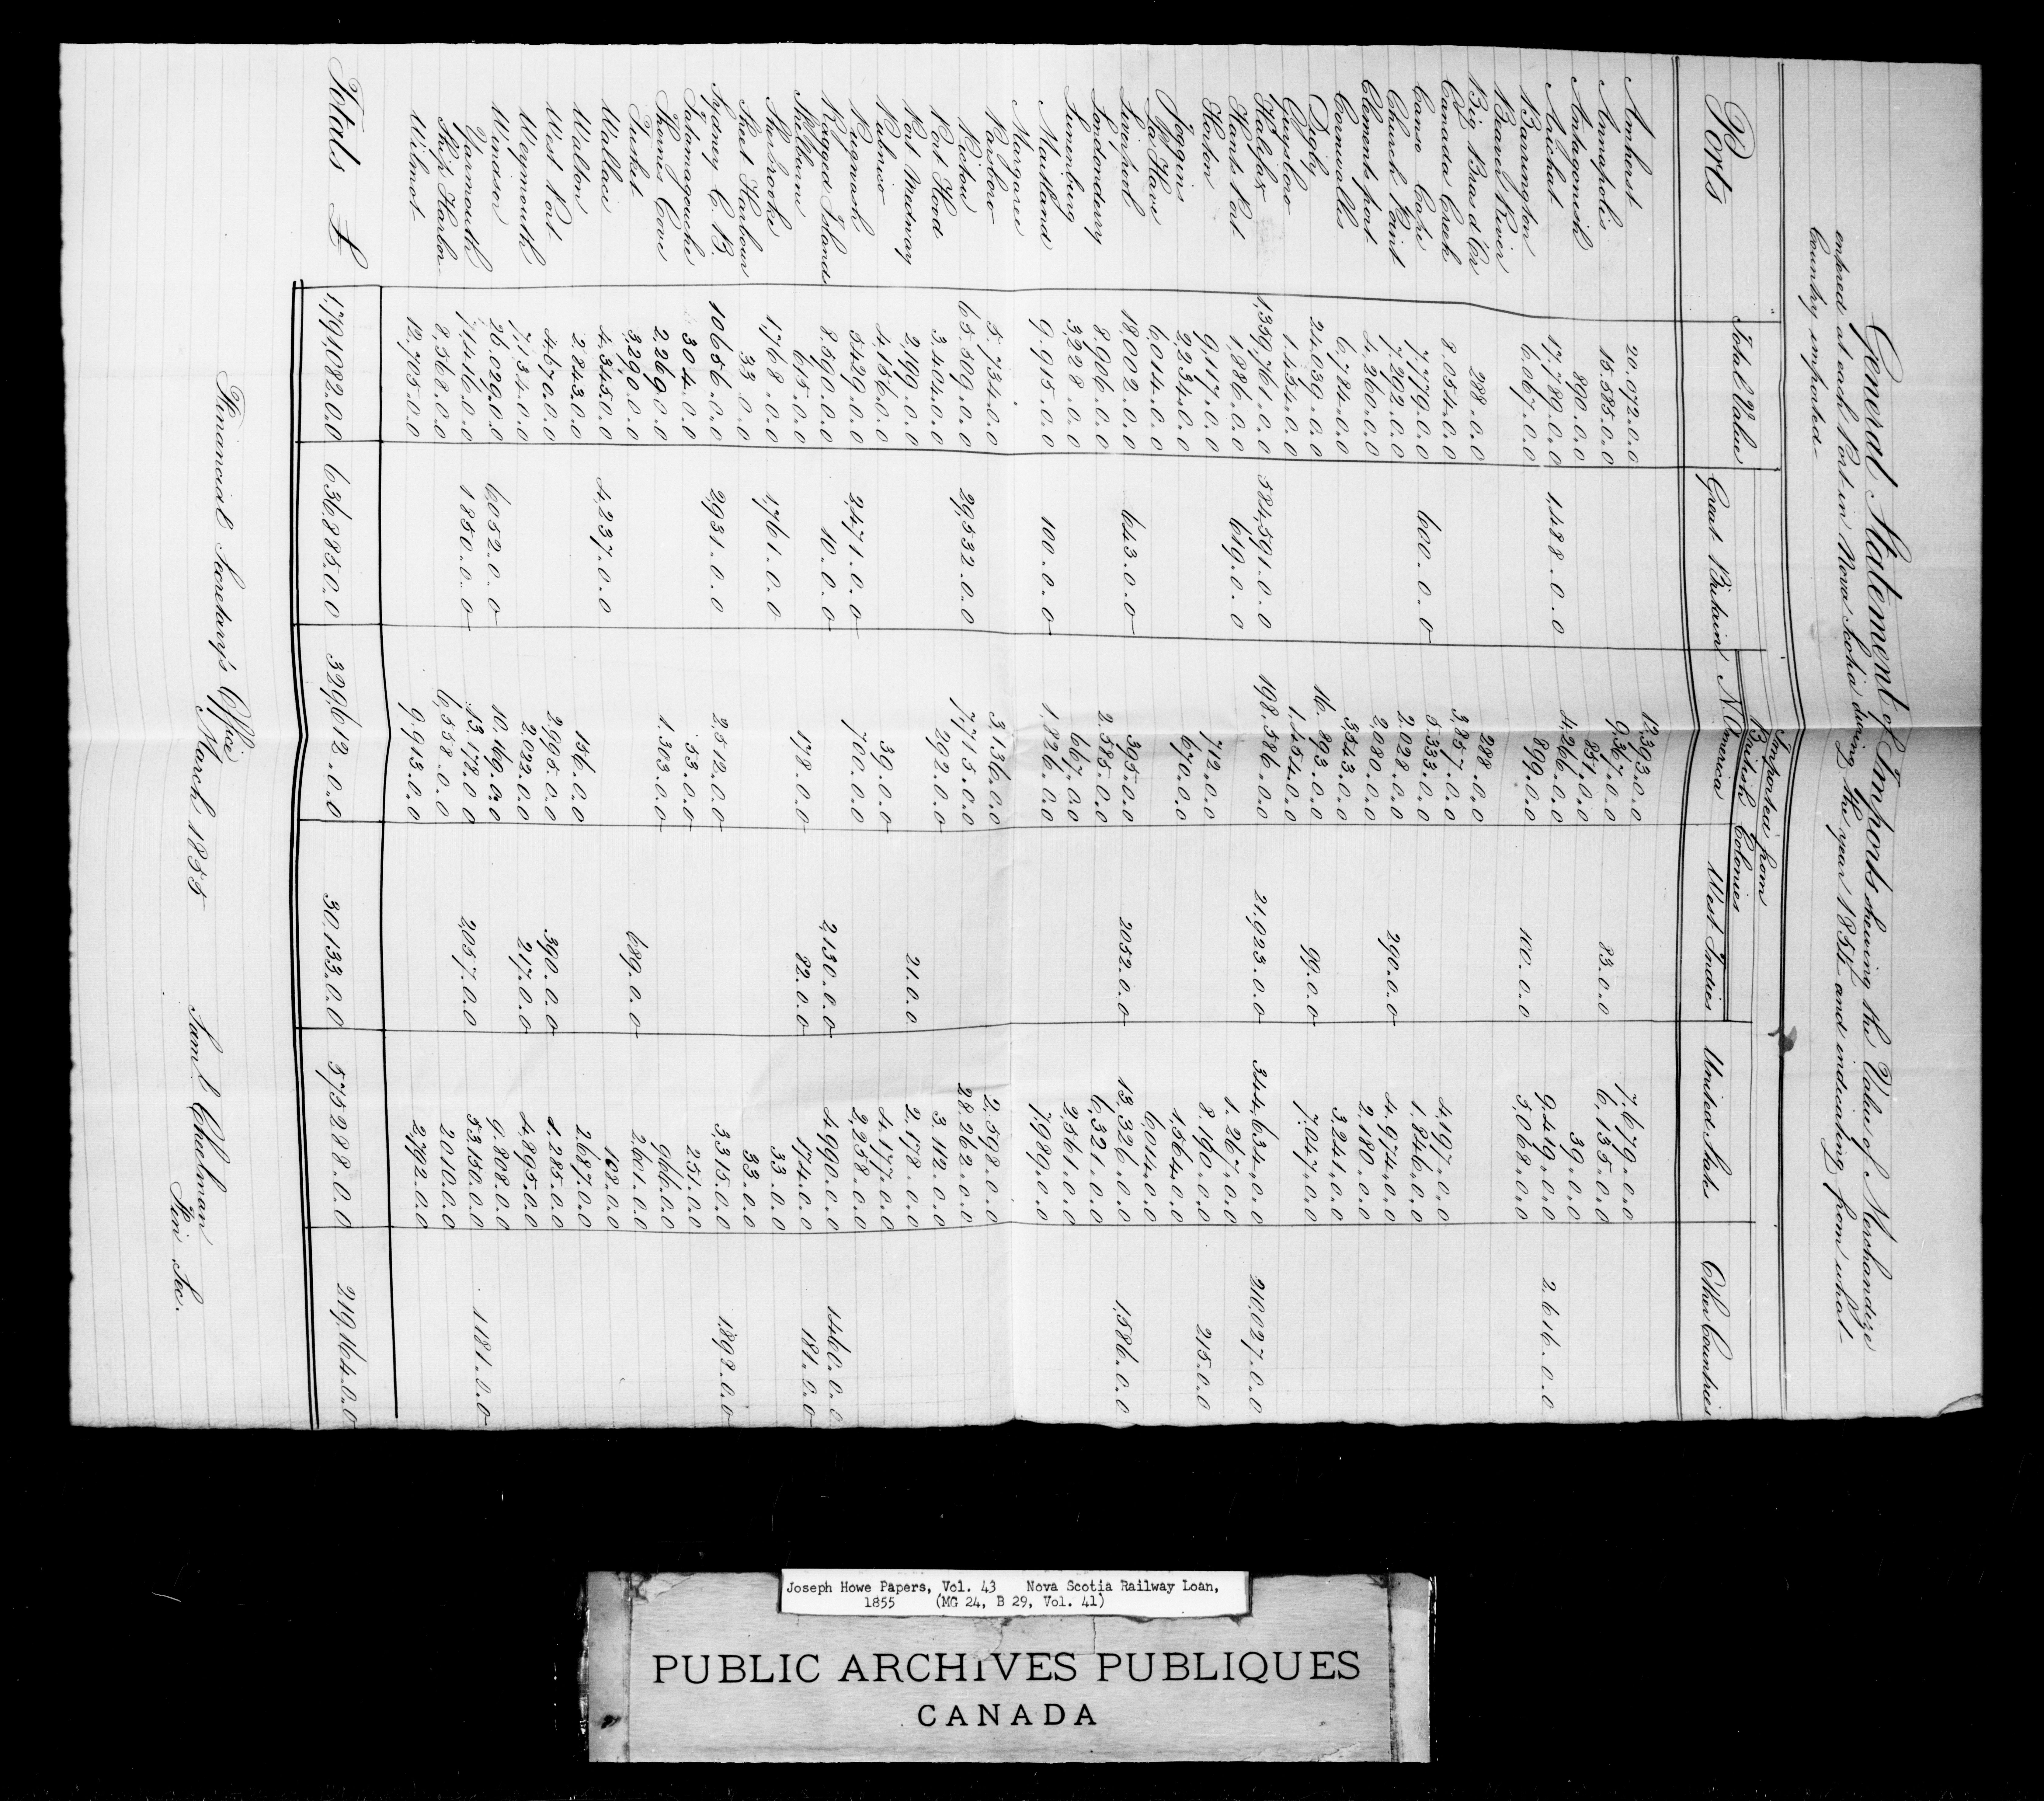 General Statement of Imports shewing the Value of Merchandize
entered at each Port in Nova Scotia during the year 1854 and indicating from what
Country imported-
Imported from
British Colonies
Ports Total Value Great Britain N. America West Indies United States Other Countries
Amherst 20,072.0.0 12,393.0.0 7,679.0.0
Annapolis 15,585.0.0 9,367.0.0 83.0.0 6,135.0.0
Antagonish 890.0.0 851.0.0 39.0.0
Arichat 17,789.0.0 1,488.0.0 4,266.0.0 9,419.0.0 2,616.0.0
Barrington 6,067.0.0 899.0.0 100.0.0 5,068.0.0
Beaver River
Big Bras d'Or 288.0.0 288.0.0
Canada Creek 8,054.0.0 3,857.0.0 4,197.0.0
Canso Cape 7,779.0.0 600.0.0 5,333.0.0 1,846.0.0
Church Point 7,292.0.0 2,028.0.0 290.0.0 4,974.0.0
Clementsport 4,260.0.0 2,080.0.0 2,180.0.0
Cornwallis 6,784.0.0 3,543.0.0 3,241.0.0
Digby 24,039.0.0 16,893.0.0 99.0.0 7,047.0.0
Guysboro 1,454.0.0 1,454.0.0
Halifax 1,359,761.0.0 584,591.0.0 198,586.0.0 21,923.0.0 344,634.0.0 210,027.0.0
Hants Port 1,886.0.0 619.0.0 1,267.0.0
Horton 9,117.0.0 712.0.0 8,190.0.0 215.0.0
Joggins 2,234.0.0 670.0.0 1,564.0.0
La Have 6,014.0.0 6,014.0.0
Liverpool 18,002.0.0 643.0.0 395.0.0 2052.0.0 13,326.0.0 1,586.0.0
Londonderry 8,906.0.0 2,585.0.0 6,321.0.0
Lunenburg 3,228.0.0 667.0.0 2,561.0.0
Maitland 9,915.0.0 100.0.0 1,826.0.0 7,989.0.0
Margaree
Parsboro 5,734.0.0 3,136.0.0 2,598.0.0
Pictou 65,509.0.0 29,532.0.0 7,715.0.0 28,262.0.0
Port Hood 3,404.0.0 292.0.0 3,112.0.0
Port Medway 2,199.0.0 21.0.0 2,178.0.0
Pubnico 4,156.0.0 39.0.0 4,117.0.0
Pugwash 5429.0.0 2,471.0.0 700.0.0 2,258.0.0
Ragged Islands 8,590.0.0 10.0.0 2,130.0.0 4,990.0.0 1460.0.0
Shelburne 615.0.0 178.0.0 82.0.0 174.0.0 181.0.0
Sherbrooke 1,768.0.0 1,761.0.0 33.0.0
Sheet Harbour 33.0.0 33.0.0
Sydney C. B. 10656.0.0 2,931.0.0 2,512.0.0 3,315.0.0 1,898.0.0
Tatamagouche 304.0.0 53.0.0 251.0.0
Thorns Cove 2,269.0.0 1,303.0.0 966.0.0
Tusket 3,290.0.0 689.0.0 2,601.0.0
Wallace 4,345.0.0 4,237.0.0 108.0.0
Walton 2,843.0.0 156.0.0 2,687.0.0
West Port 4,670.0.0 2,995.0.0 390.0.0 1,285.0.0
Weymouth 7,134.0.0 2,022.0.0 217.0.0 4,895.0.0
Windsor 26,029.0.0 6,052.0.0 10,169.0.0 9,808.0.0
Yarmouth 71,416.0.0 1850.0.0 13,178.0.0 2,057.0.0 53,150.0.0 1181.0.0
Ship Harbor 8,568.0.0 6,558.0.0 2010.0.0
Wilmot 12,705.0.0 9,913.0.0 2,792.0.0
Totals £ 1,791,082.0.0 636,885.0.0 329,612.0.0 30,133.0.0 575288.0.0 219,164.0.0
Financial Secretary's Office
March 1855
Saml. Chipman
Fin Sec.
Joseph Howe Papers, Vol. 43 Nova Scotia Railway Loan,
1855 (MG 24, B 29, Vol. 41)
PUBLIC ARCHIVES PUBLIQUES
CANADA